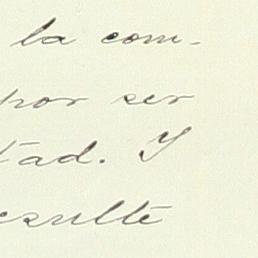 la com-
por ser
tad. Y
esulte